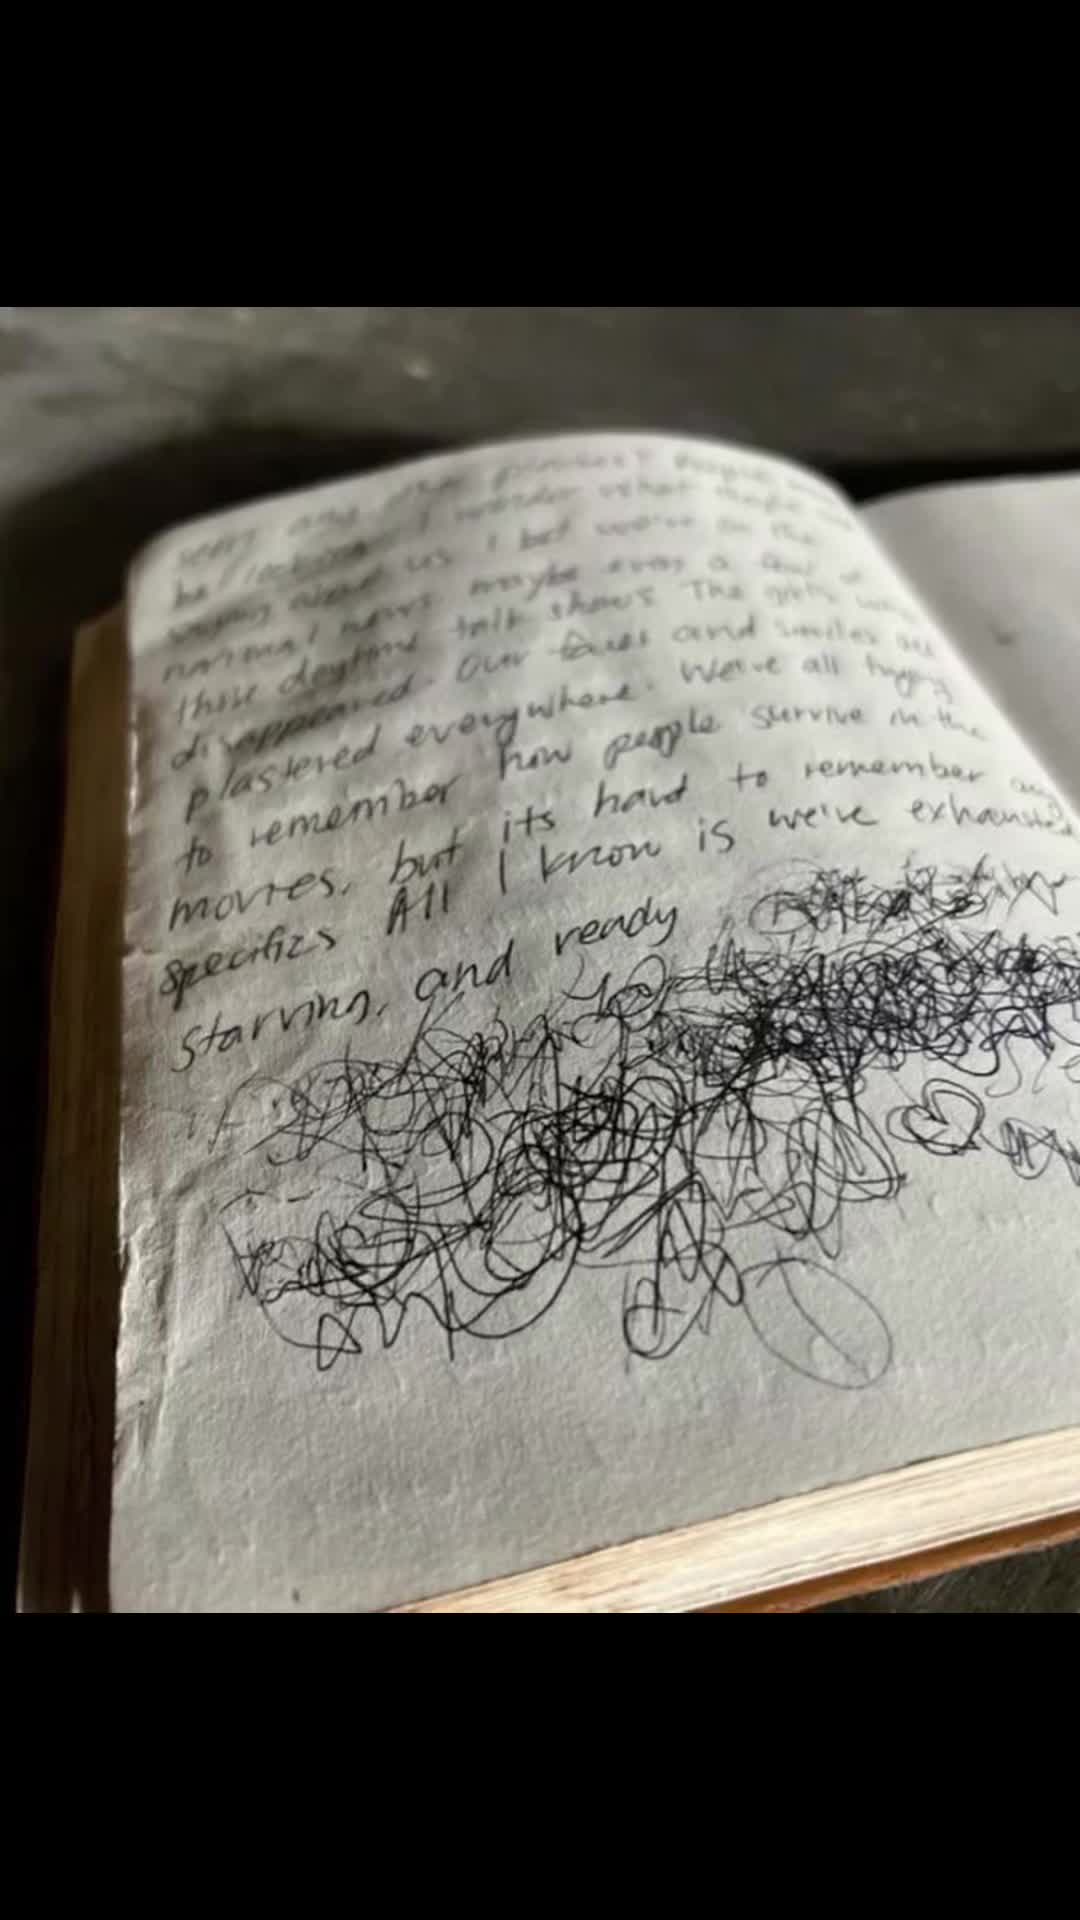 very any
be looking I wonder what people
saying about us. I bet we're on the
national news maybe even a few of
those daytime talk shows The girls who
disappeared. Our faces and smiles are
plastered everywhere. We've all trying
to remember how people survive in the
movies, but its hard to remember any
specifics All I know is we're exhausted
starving, and ready